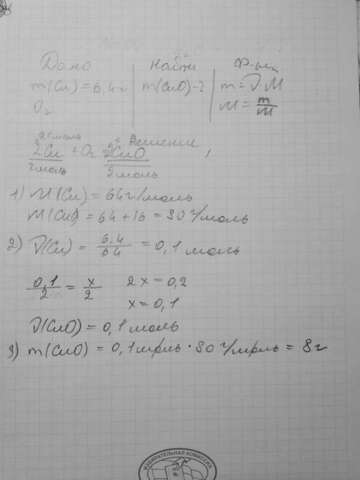 Дано
Найти
Ф-лы
m(Cu) = 6,4г
m(CuO) - ?
m = ν M
O₂
M = m/M
Решение
2Cu + O₂ = 2CuO
2моль
2моль
1) M(Cu) = 64г/моль
M(CuO) = 64 + 16 = 80 г/моль
2) ν(Cu) = 6.4/64 = 0,1 моль
0,1/2 = x/2
2x = 0,2
x = 0,1
ν(CuO) = 0,1 моль
3) m(CuO) = 0,1моль · 80 г/моль = 8г
ИЗБИРАТЕЛЬНАЯ КОМИССИЯ